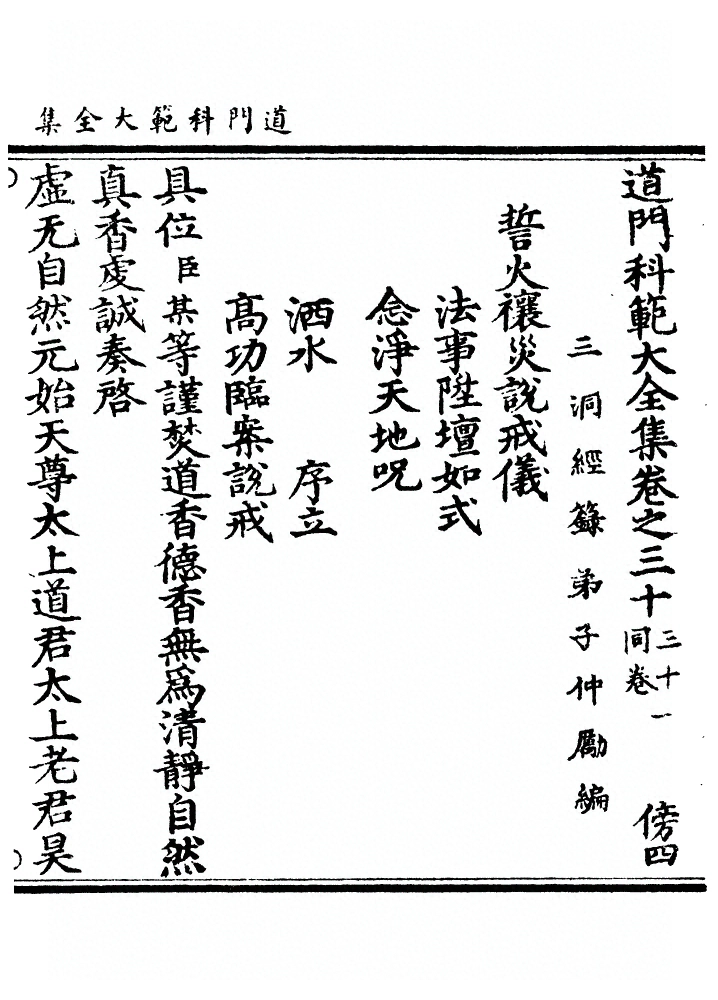 道門科範大全集
道門科範大全集卷之三十三十一同卷 傍四
三洞經籙弟子仲勵編
誓火禳災說戒儀
法事陞壇如式
念淨天地呪
洒水 序立
高功臨案說戒
具位臣某等謹焚道香德香無爲清靜自然
真香虔誠奏啓
虛无自然元始天尊太上道君太上老君昊